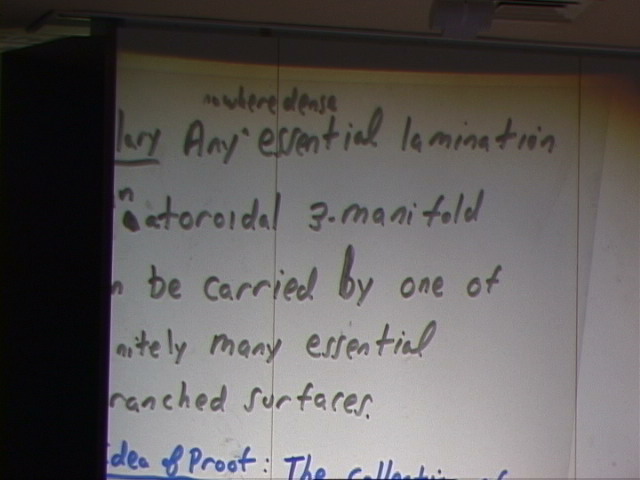 nowhere dense
lary Any essential lamination
n atoroidal 3-manifold
n be carried by one of
nitely many essential
ranched surfaces.
dea of Proof: The collection of